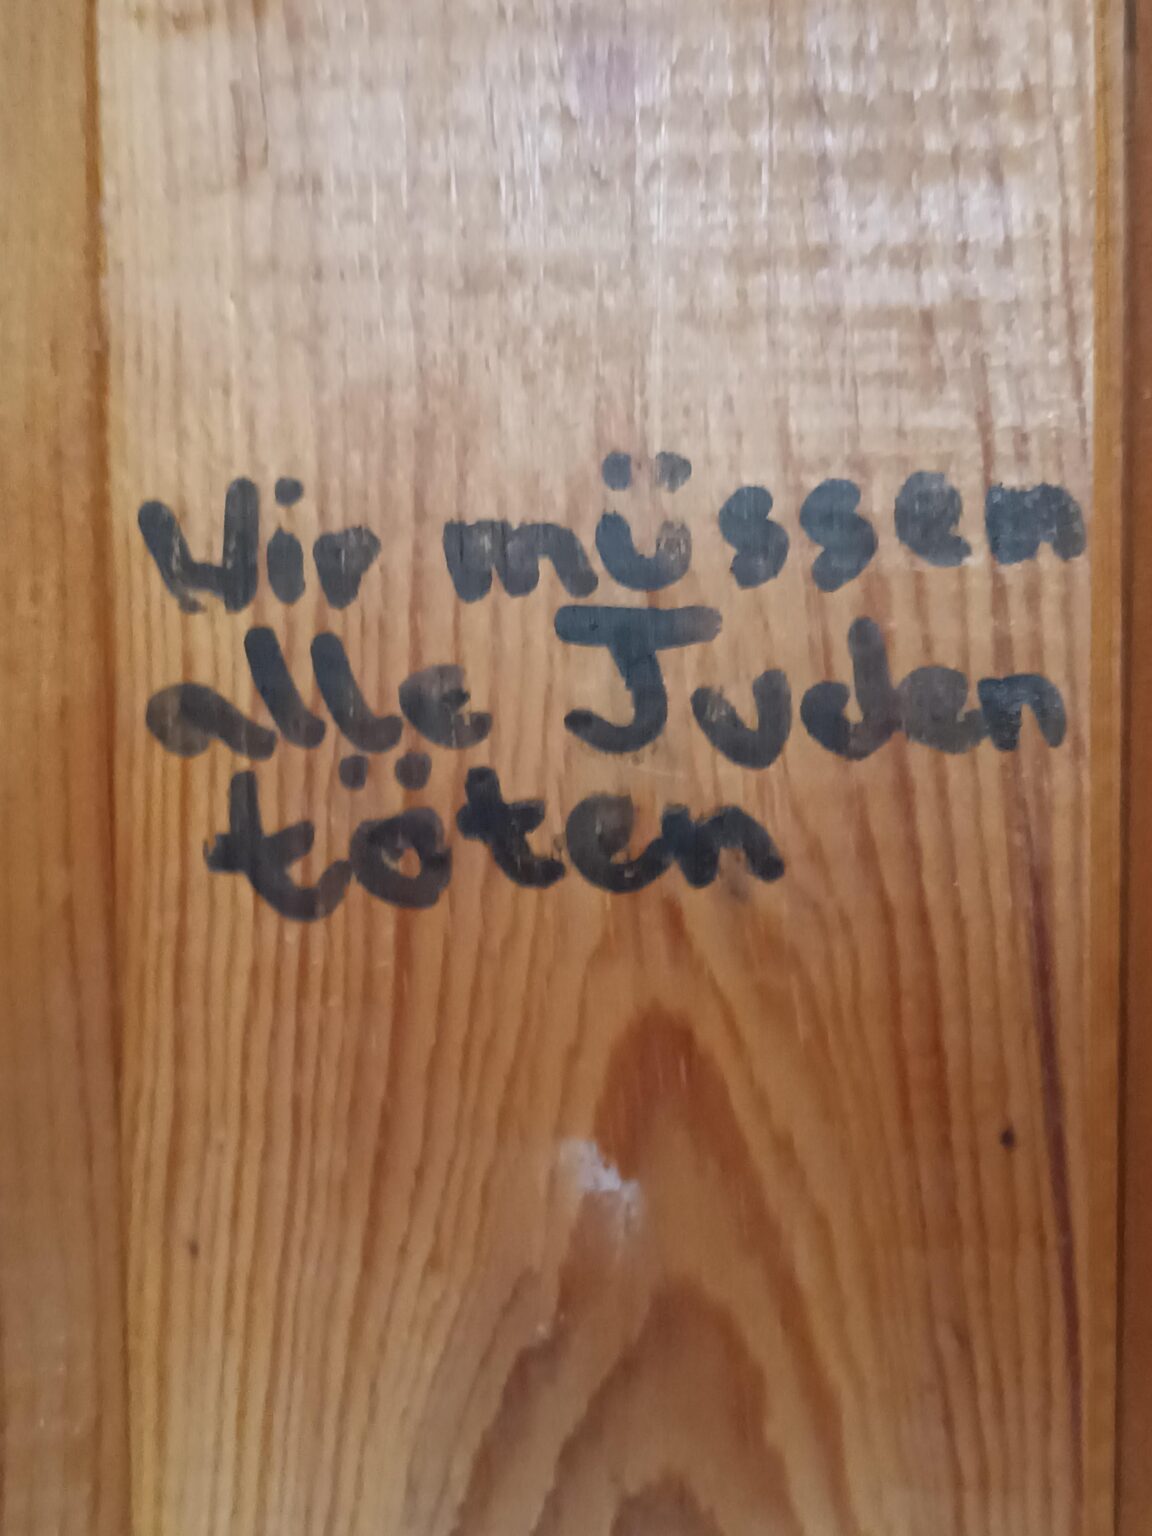 Wir müssen
alle Juden
töten